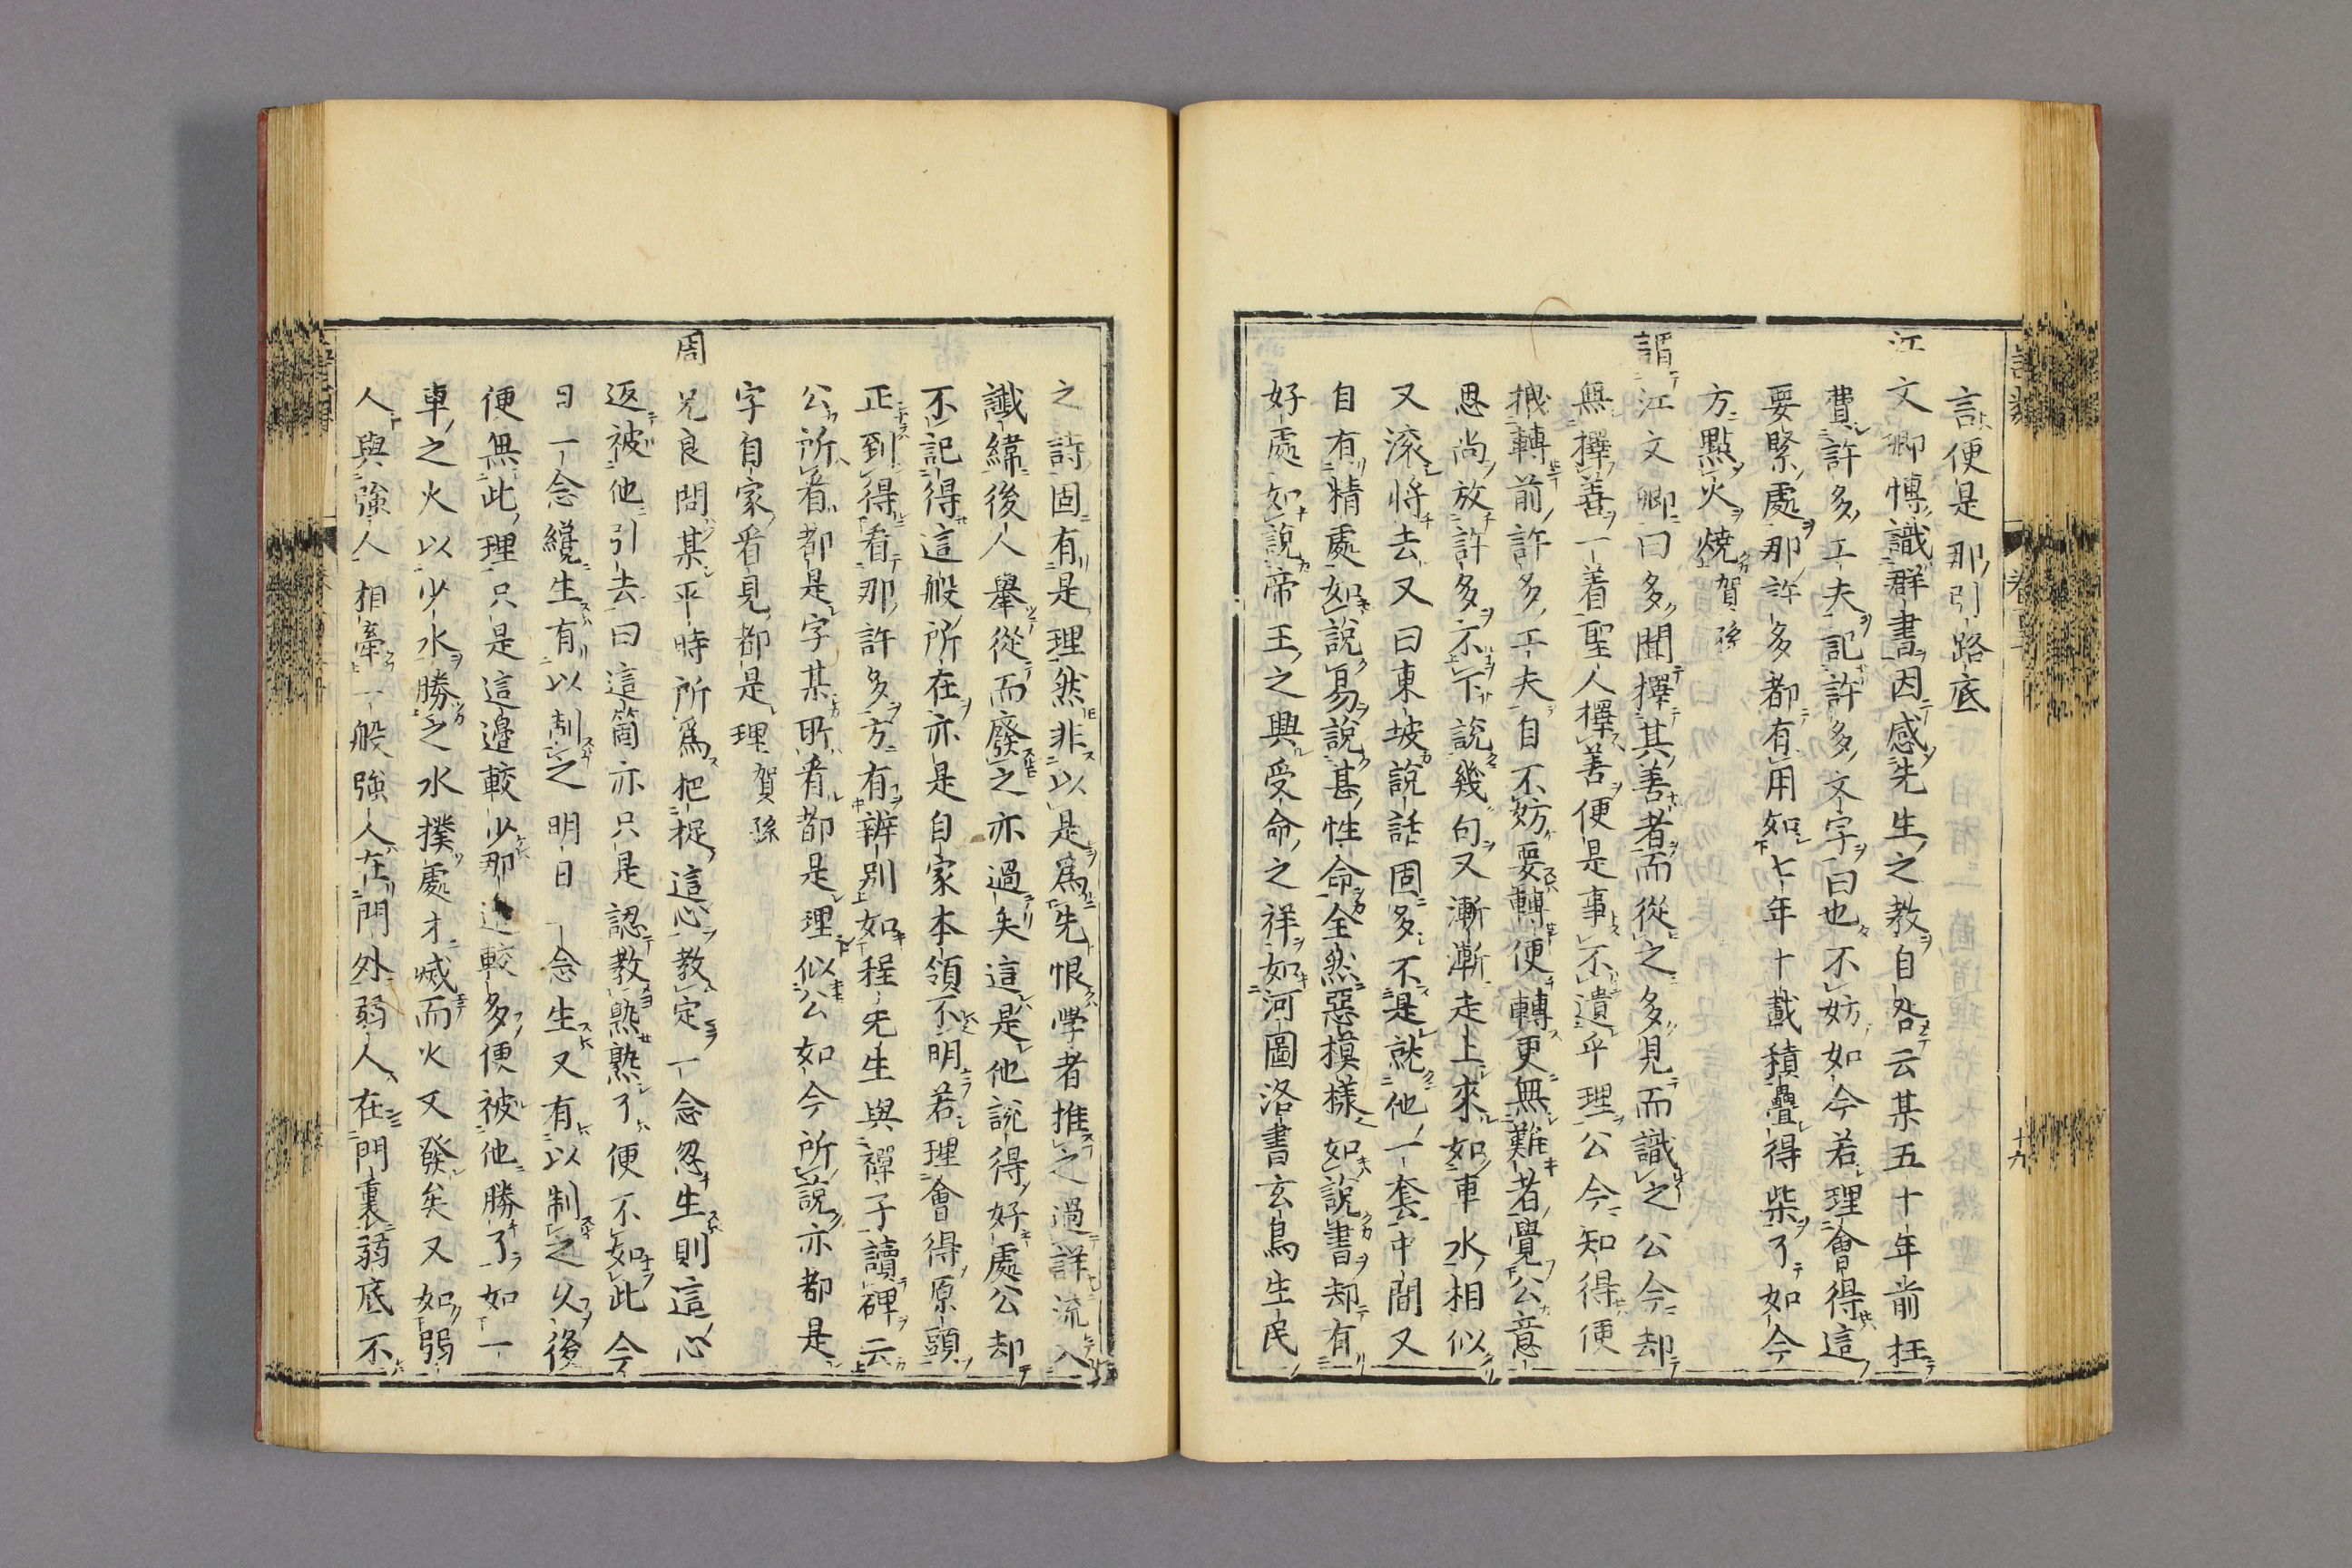 言便是那引路底
江文卿愽識群書因感先生之教自咎云某五十年前枉
費許多工夫記許多文字曰也不妨如今若理會得這
要緊處那許多都有用如七年十載積疊得柴了如今
方點火燒賀孫
謂江文卿曰多聞擇其善者而從之多見而識之公今却
無擇善一着聖人擇善便是事不遺乎理公今知得便
拽轉前許多工夫自不妨要轉便轉更無難者覺公意
思尚放許多不下說幾句又漸漸走上來如車水相似
又滚將去又曰東坡說話固多不是就他一套中間又
自有精處如說易說甚性命全然惡模樣如說書却有
好處如說帝王之興受命之祥如河圖洛書玄鳥生民
之詩固有是理然非以是爲先恨學者推之過詳流入
讖緯後人舉從而廢之亦過矣這是他說得好處公却
不記得這般所在亦是自家本領不明若理會得原頭
正到得看那許多方有辨別如程先生與禪子讀碑云
公所看都是字某所看都是理似公如今所說亦都是
字自家看見都是理賀孫
周兄良問某平時所爲把捉這心教定一念忽生則這心
返被他引去曰這箇亦只是認教熟熟了便不如此今
日一念纔生有以制之明日一念生又有以制之久後
便無此理只是這邉較少那邉較多便被他勝了如一
車之火以少水勝之水撲處才滅而火又發矣又如弱
人與強人相牽一般強人在門外弱人在門裏弱底不
十九